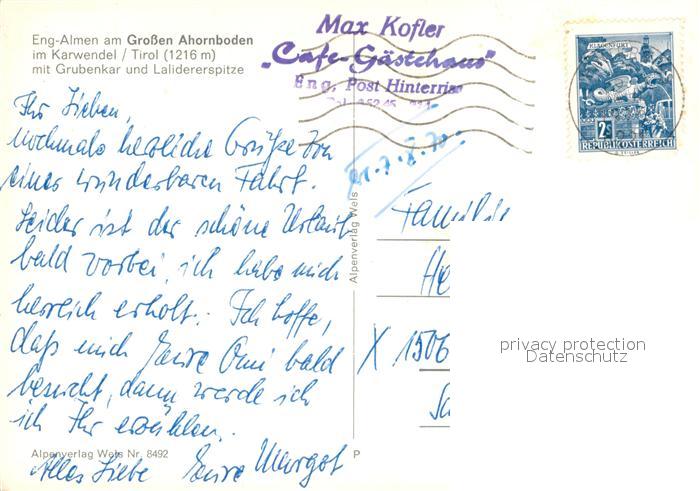 Eng-Almen am Großen Ahornboden
im Karwendel / Tirol (1216 m)
mit Grubenkar und Lalidererspitze
Max Kofler
„Cafe-Gästehaus"
Eng, Post Hinterriss
KLAGENFURT
2 S
REPUBLIK ÖSTERREICH
Ihr Lieben,
nochmals herzliche Grüße von
einer wunderbaren Fahrt.
Leider ist der schöne Urlaub
bald vorbei, ich habe mich
herrlich erholt. Ich hoffe,
daß mich Eure Omi bald
besucht, dann werde ich
ich Ihr erzählen.
Alles Liebe Eure Margot
Alpenverlag Wels Nr. 8492
P
Alpenverlag Wels
Familie
He
X 1506
privacy protection
Datenschutz